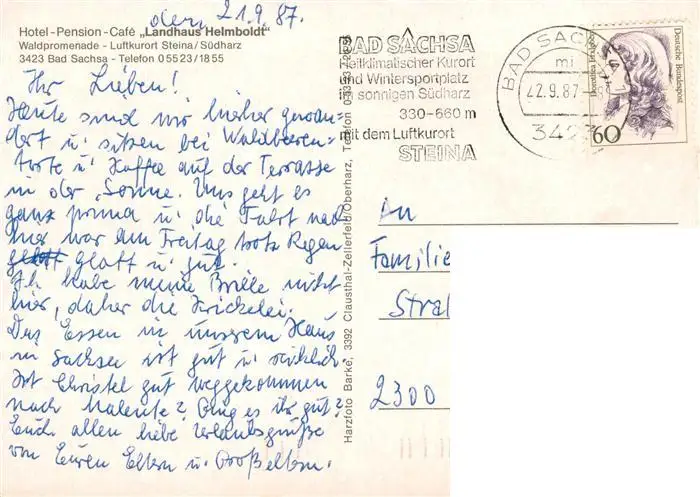 den 21.9.87.
Hotel-Pension-Café „Landhaus Helmboldt"
Waldpromenade - Luftkurort Steina/Südharz
3423 Bad Sachsa - Telefon 0 55 23 / 18 55
Ihr Lieben!
Heute sind wir hierher gewan-
dert u. sitzen bei Waldbeeren-
torte u. Kaffee auf der Terrasse
in der Sonne. Uns geht es
ganz prima u. die Fahrt nach
hier war am Freitag trotz Regen
glatt u. gut.
Ich habe meine Brille nicht
hier, daher die Krickelei.
Das Essen in unserem Haus
in Sachsa ist gut u. reichlich.
Ist Christel gut weggekommen
nach Malente? Ging es ihr gut?
Euch allen liebe Urlaubsgrüße
von Euren Eltern u. Großeltern.
Harzfoto Barke, 3392 Clausthal-Zellerfeld/Oberharz, Telefon
BAD SACHSA
Heilklimatischer Kurort
und Wintersportplatz
im sonnigen Südharz
330-660 m
mit dem Luftkurort
STEINA
BAD SACHSA
mi
22.9.87
3423
Deutsche Bundespost
60
An
Familie
Straß
2300